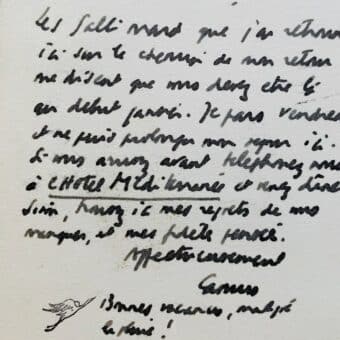 Les Gallimard que j'ai retrouv
ici sur le chemin de mon retour
me disent que vous devez être là
au début janvier. Je pars vendre
et ne puis prolonger mon séjour ici.
Si vous arrivez avant téléphonez moi
à L'HOTEL Méditerranée et venez dîner
Sinon, trouvez ici mes regrets de vous
manquer, et mes fidèles pensées.
Affectueusement
Camus
Bonnes vacances, malgré
la pluie !